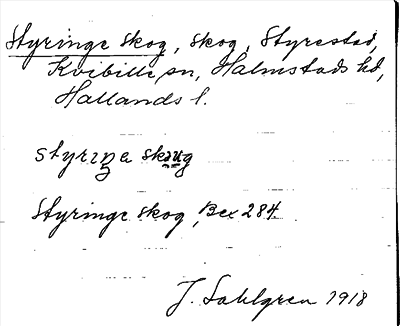 Styringe skog, skog, Styrestad,
Kvibille sn, Halmstads hd,
Hallands l.
styrıŋa skɑug
Styringe skog Bex 284.
J. Sahlgren 1918